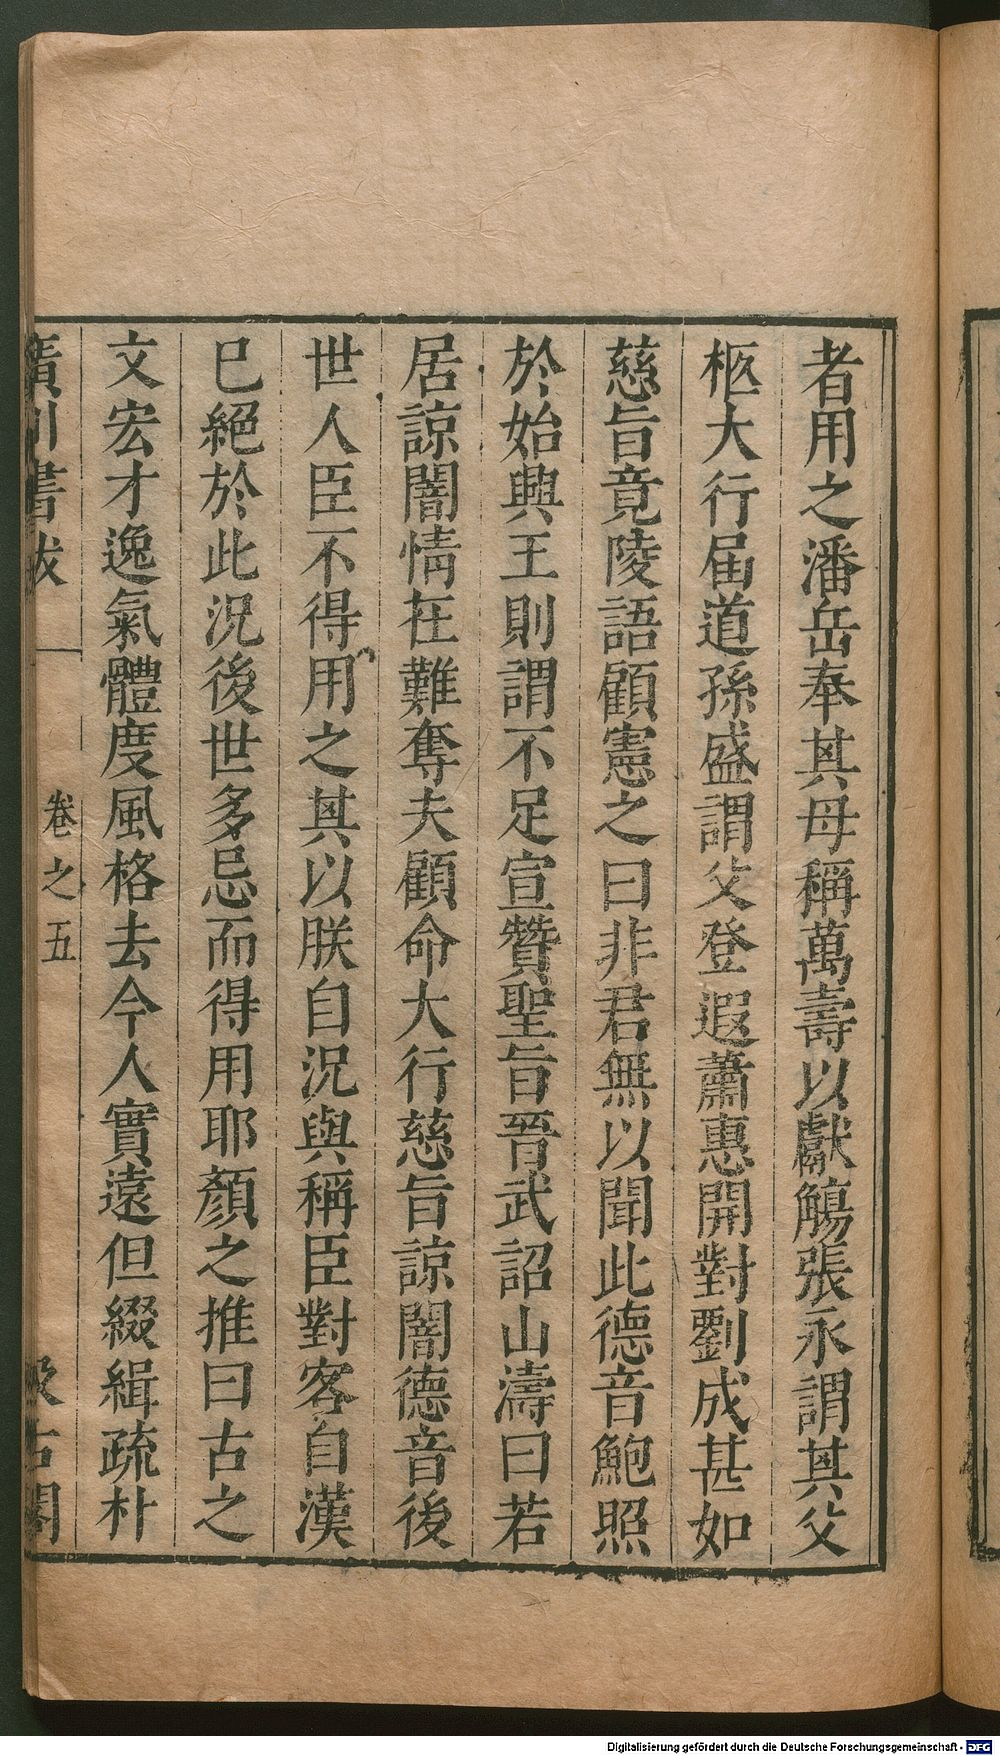 者用之潘岳奉其母稱萬壽以獻觴張永謂其父
柩大行届道孫盛謂父登遐蕭惠開對劉成甚如
慈旨竟陵語顧憲之曰非君無以聞此德音鮑照
於始興王則謂不足宣贊聖旨晉武詔山濤曰若
居諒闇情在難奪夫顧命大行慈旨諒闇德音後
世人臣不得用之其以朕自況與稱臣對客自漢
巳絕於此況後世多忌而得用耶顏之推曰古之
文宏才逸氣體度風格去今人實遠但綴緝疏朴
廣川書跋
卷之五
汲古閣
Digitalisierung gefördert durch die Deutsche Forschungsgemeinschaft - DFG